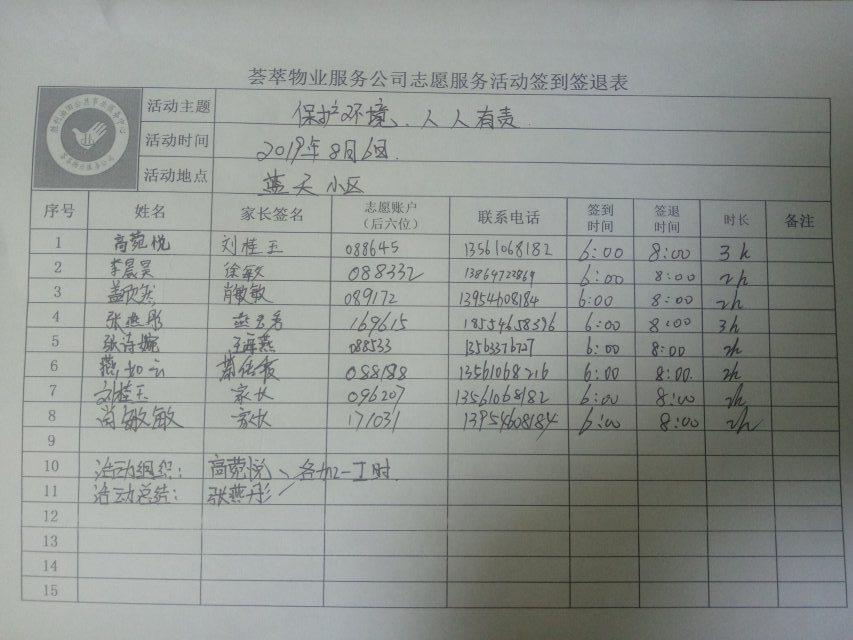 荟萃物业服务公司志愿服务活动签到签退表
活动主题 保护环境、人人有责
活动时间 2019年8月6日.
活动地点 蓝天小区
序号 姓名 家长签名 志愿账户（后六位） 联系电话 签到时间 签退时间 时长 备注
1 高菀悦 刘桂玉 088645 13561068182 6:00 8:00 3h
2 李晨昊 徐敏 088332 13864722869 6:00 8:00 2h
3 孟欣然 肖敏敏 089172 13954608184 6:00 8:00 2h
4 张燕彤 169615 18554658396 6:00 8:00 3h
5 张诗婉 王海燕 088533 1356337672 6:00 8:00 2h
6 088188 13561068216 6:00 8:00. 2h
7 刘桂玉 家长 096207 13561068182 6:00 8:00 2h
8 肖敏敏 家长 171031 13954608184 6:00 8:00 2h
9
10 活动组织: 高菀悦、各加一工时.
11 活动总结: 张燕彤
12
13
14
15